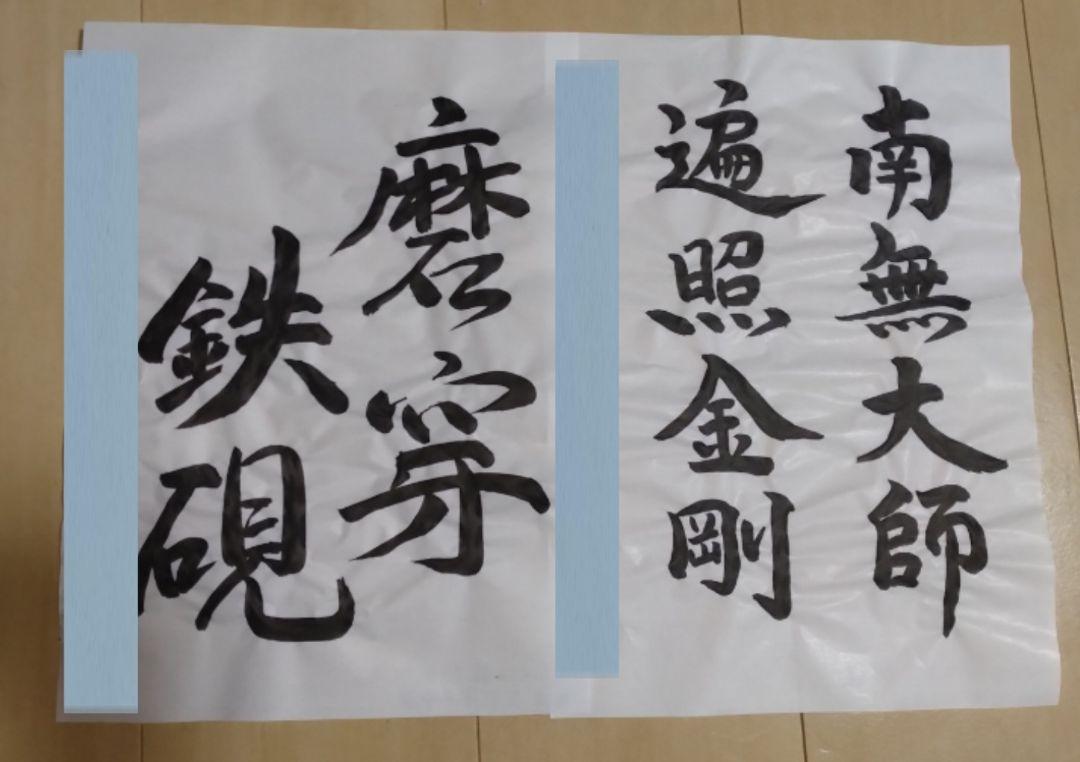 南無大師
遍照金剛
磨穿
鉄硯